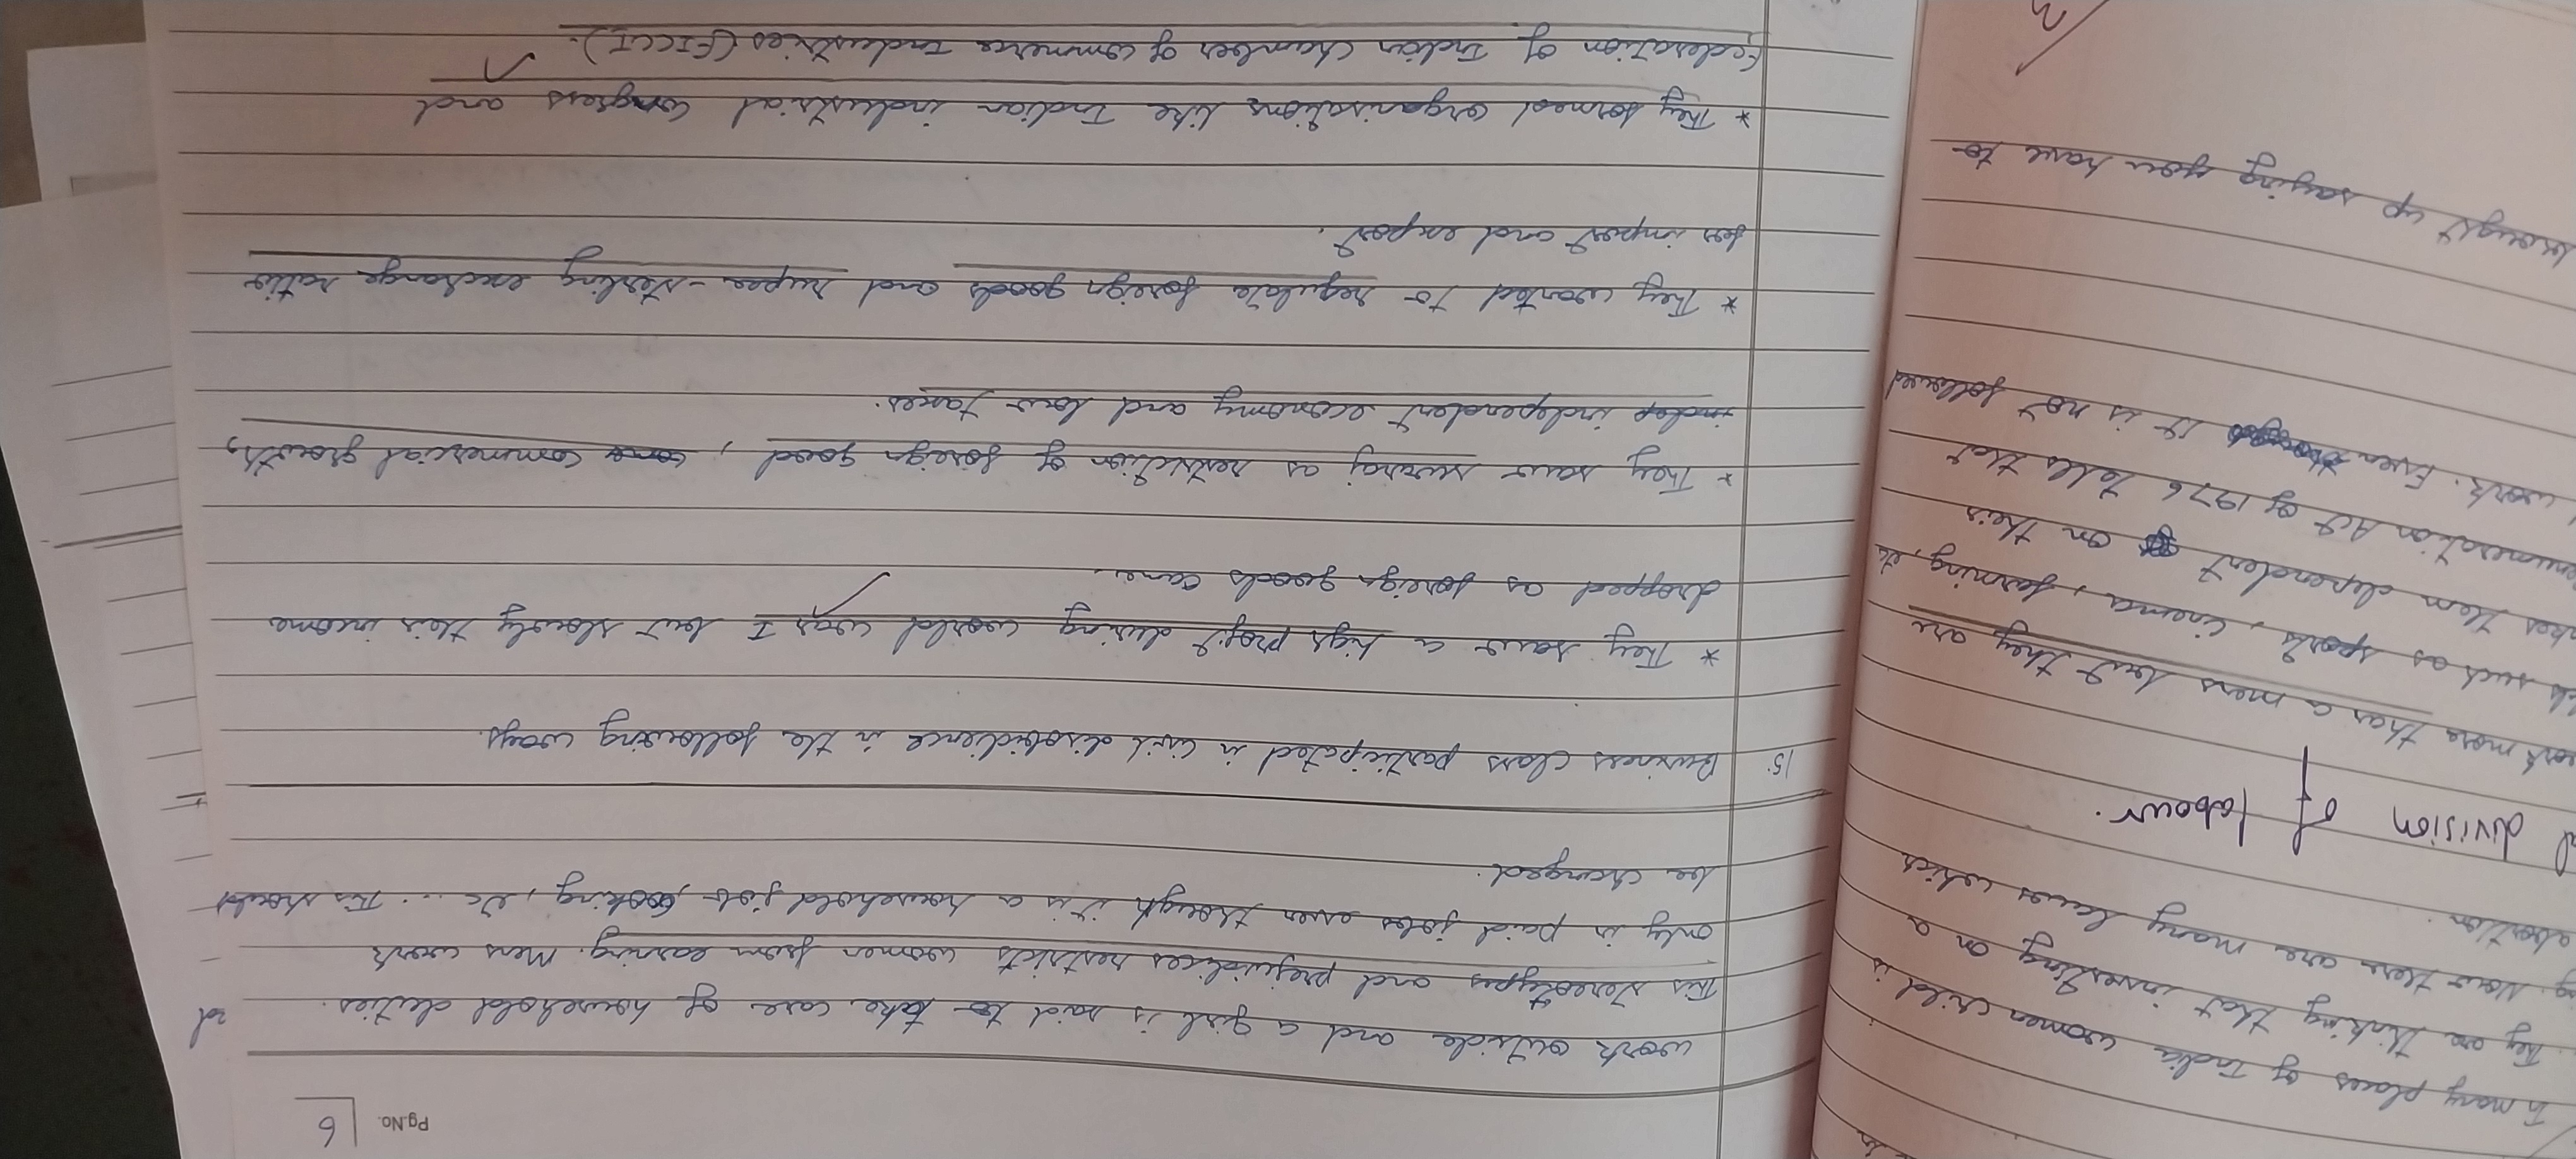 Pg.No. 6
work outside and a girl is said to take care of household duties.
This stereotypes and prejudices restricts women from earning. Mens work
only in paid jobs even though it is a household job cooking, etc .... This should
be changed.
15. Business class participated in civil disobidience in the following ways.
* They saw a high profit during world war I but slowly their income
dropped as foreign goods came.
* They saw swaraj as restriction of foreign good, come commercial growth,
indep independent economy and low taxes.
* They wanted to regulate foreign goods and rupee-sterling exchange ratio
for import and export.
* They formed organisations like Indian industrial Congress and
Federation of Indian Chamber of Commerce Industries (FICCI).
In many places of India women child is
They are thinking that investing on a
Now there are many laws which
abortion.
division of labour.
work more than a mens but they are
such as sports, cinema, farming, etc
them dependent on their
Act of 1976 tells that
work. Even though it is not followed
brought up saying you have to